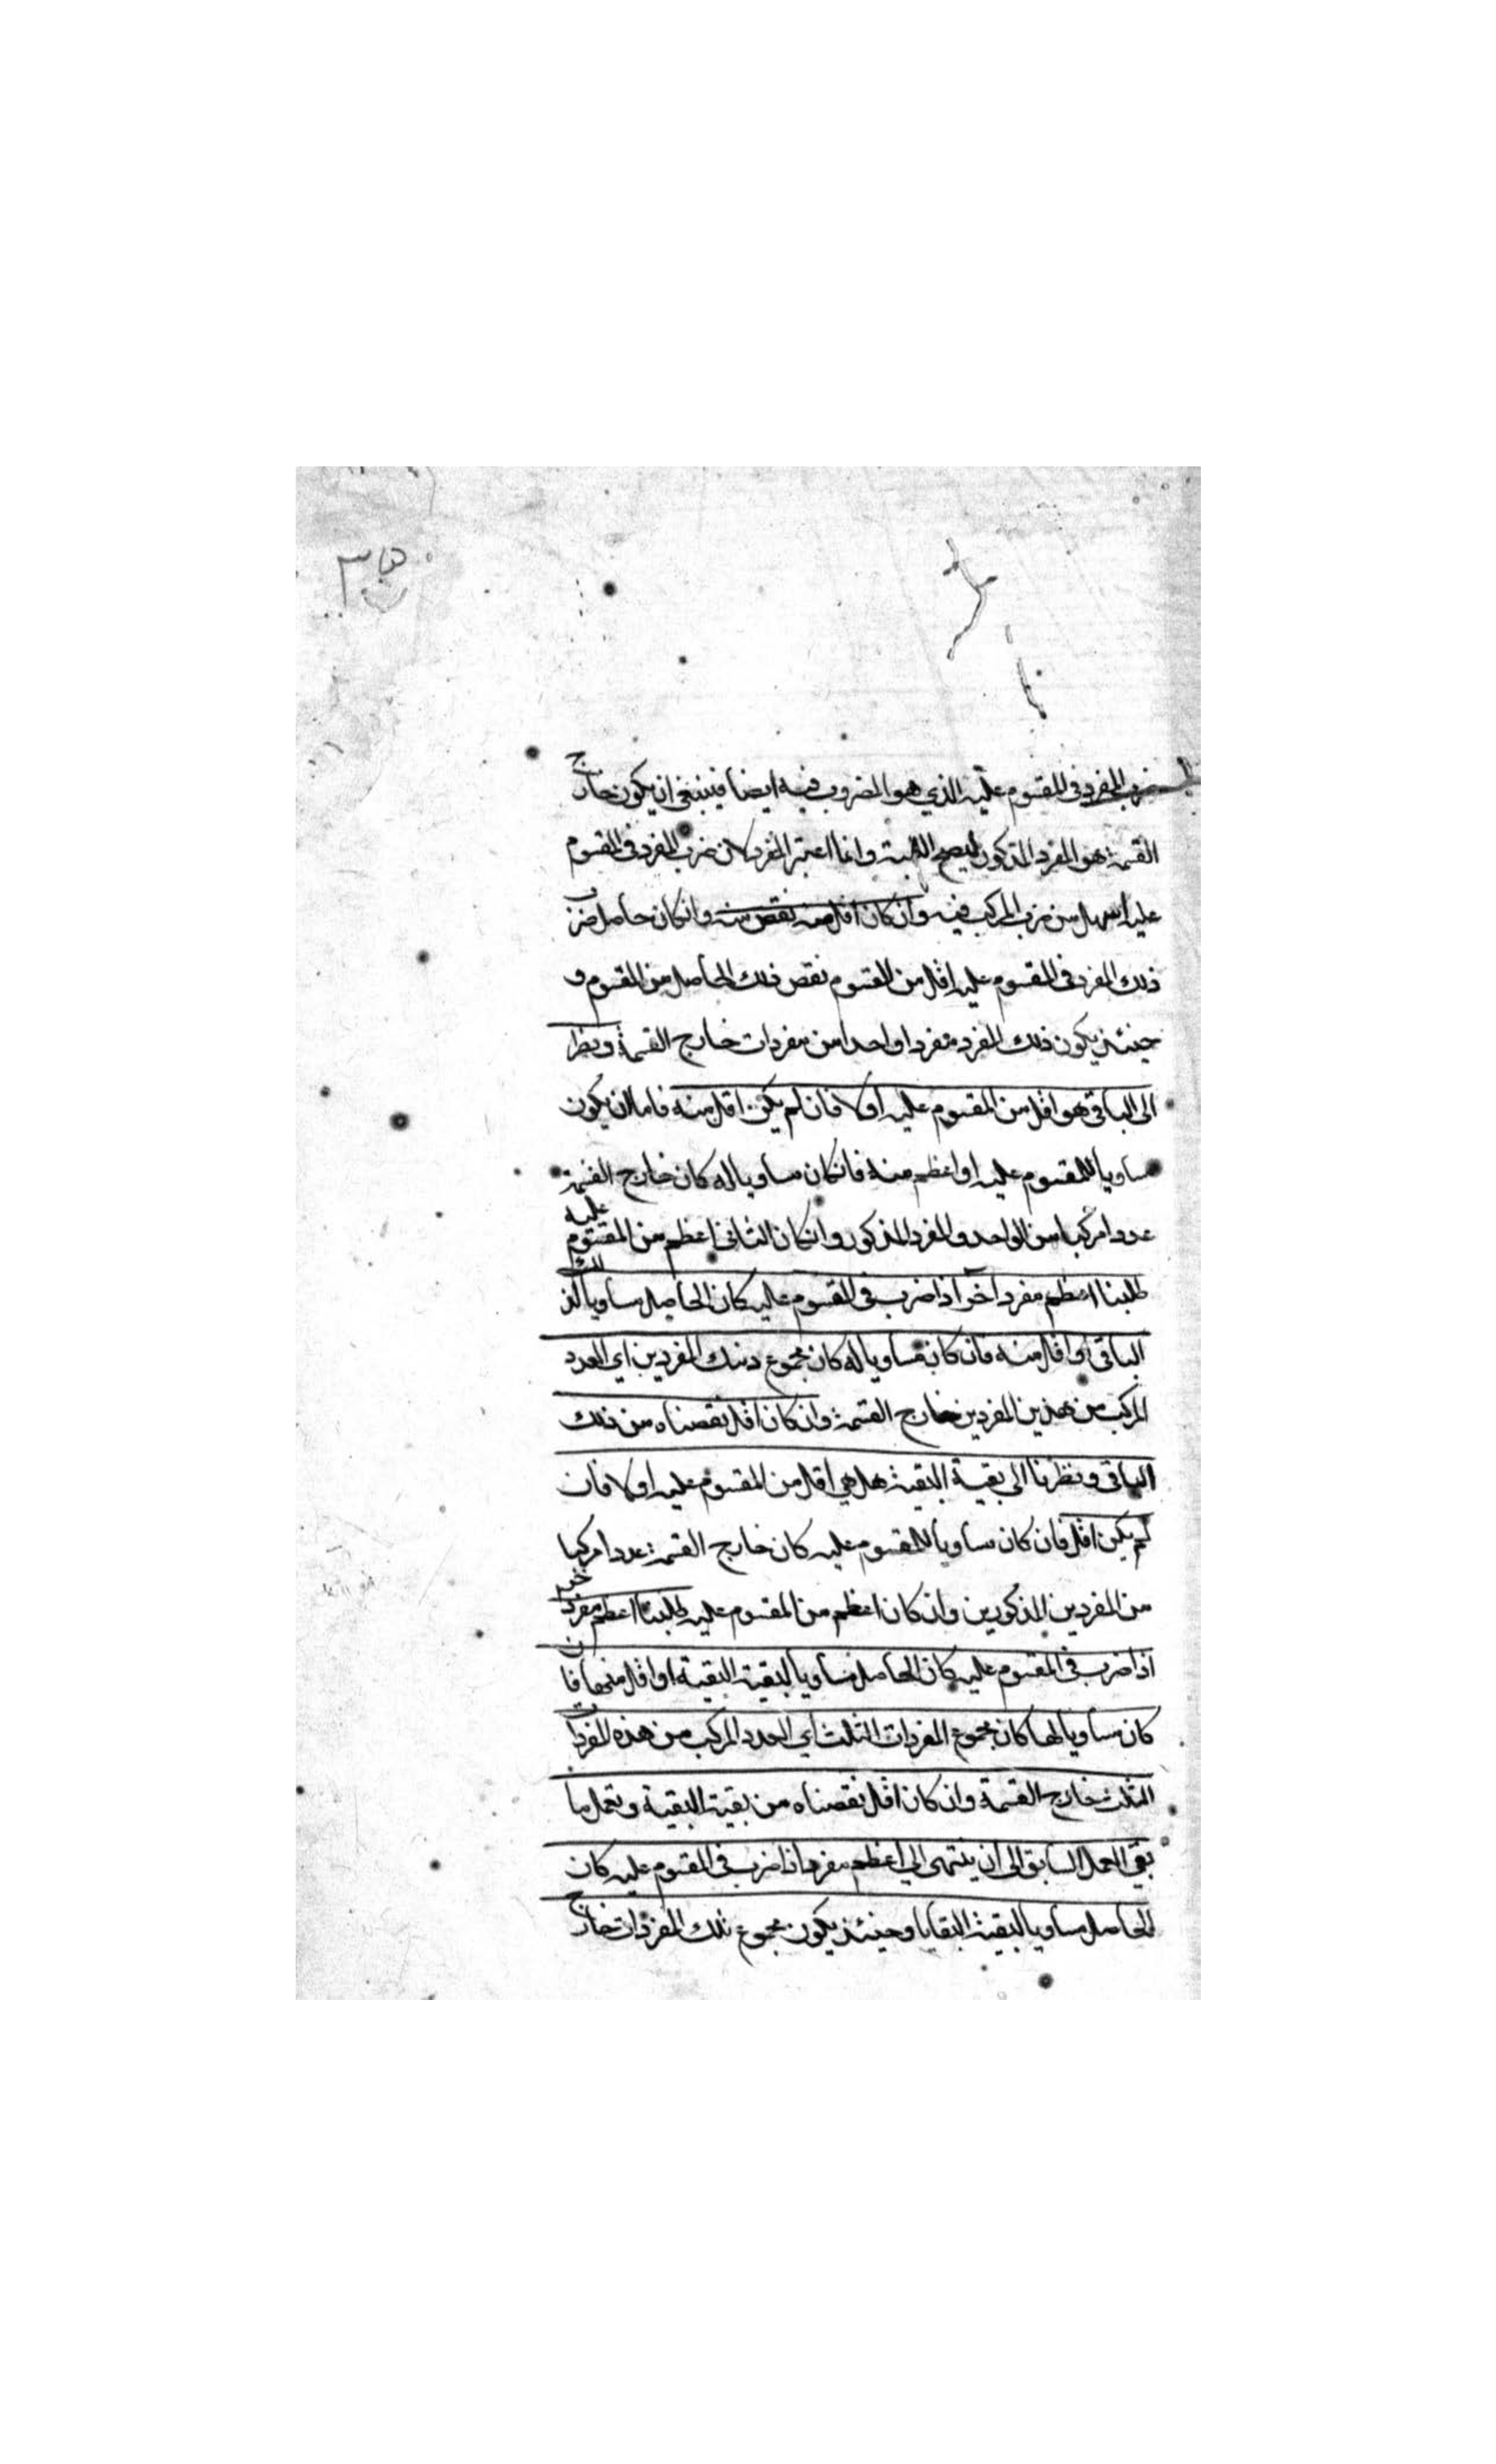 ضرب المفرد فى المقسوم عليه الذي هو المضروب فيه ايضا فينبغى ان يكون خارج
القسمة هو المفرد المذكور ليصح النسبة وانما اعتبر المفرد لان ضرب المفرد فى المقسوم
عليه اسهل من ضرب المركب فيه وان كان اقل منه نقص منه وان كان حاصل ضرب
ذلك المفرد فى المقسوم عليه اقل من المقسوم نقص ذلك الحاصل من المقسوم و
حينئذ يكون ذلك المفرد مفردا واحدا من مفردات خارج القسمة ونظر
الى الباقى هو اقل من المقسوم عليه او لا فان لم يكن اقل منه فاما ان يكون
مساويا للمقسوم عليه او اعظم منه فان كان مساويا له كان خارج القسمة
عددا مركبا من الواحد والمفرد المذكور وان كان الثانى اعظم من المقسوم عليه
طلبنا اعظم مفرد آخر اذا ضرب فى المقسوم عليه كان الحاصل مساويا لذلك
الباقى او اقل منه فان كان مساويا له كان مجموع ذينك المفردين اي العدد
المركب من هذين المفردين خارج القسمة وان كان اقل نقصناه من ذلك
الباقى ونظرنا الى بقية البقية هل هي اقل من المقسوم عليه او لا فان
لم يكن اقل فان كان مساويا للمقسوم عليه كان خارج القسمة عددا مركبا
من المفردين المذكورين وان كان اعظم من المقسوم عليه طلبنا اعظم مفرد
اذا ضرب فى المقسوم عليه كان الحاصل مساويا لبقية البقية او اقل منها فان
كان مساويا لها كان مجموع المفردات الثلث اي العدد المركب من هذه المفردات
الثلث خارج القسمة وان كان اقل نقصناه من بقية البقية ونعمل بما
بقي العمل السابق الى ان ينتهى الى اعظم مفرد اذا ضرب فى المقسوم عليه كان
الحاصل مساويا لبقية البقايا وحينئذ يكون مجموع تلك المفردات خارج